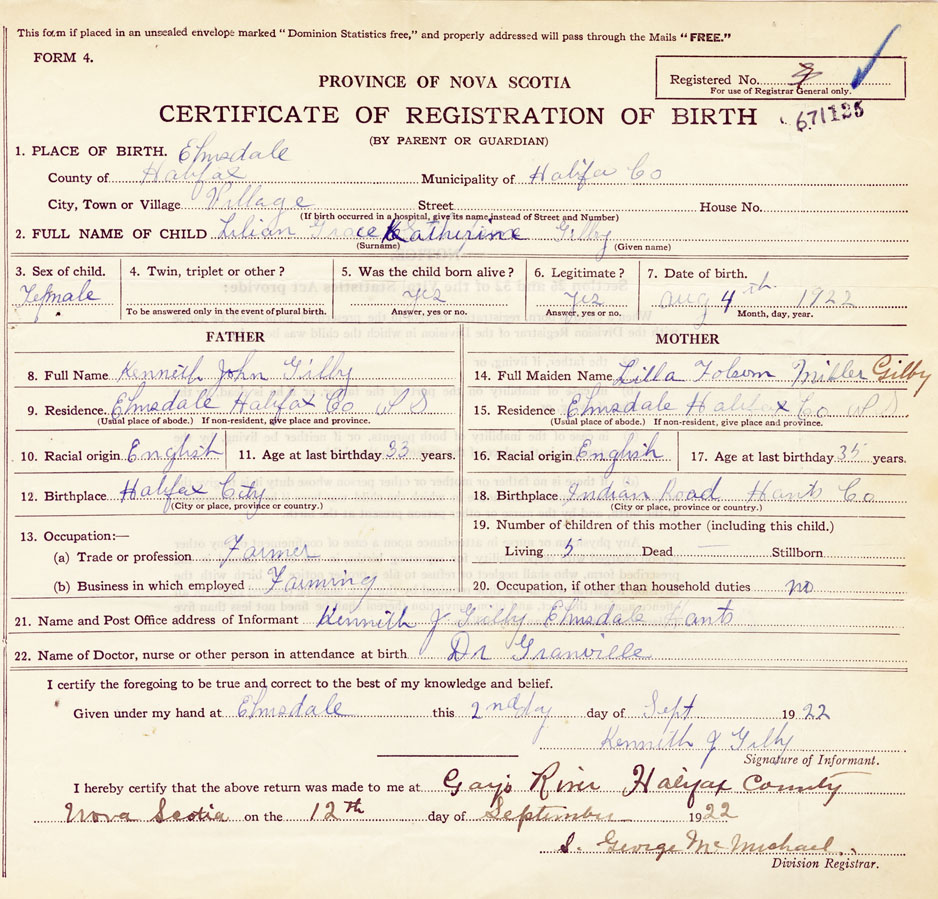 This form if placed in an unsealed envelope marked "Dominion Statistics free," and properly addressed will pass through the Mails "FREE."
FORM 4.
PROVINCE OF NOVA SCOTIA
Registered No.
For use of Registrar General only.
CERTIFICATE OF REGISTRATION OF BIRTH
671125
(BY PARENT OR GUARDIAN)
1. PLACE OF BIRTH. Elmsdale
County of Halifax Municipality of Halifax Co
City, Town or Village Village Street House No.
(If birth occurred in a hospital, give its name instead of Street and Number)
2. FULL NAME OF CHILD Lilian Grace Katherine Gilby
(Surname) (Given name)
3. Sex of child. 4. Twin, triplet or other? 5. Was the child born alive? 6. Legitimate? 7. Date of birth.
Female yes yes Aug 4th 1922
To be answered only in the event of plural birth. Answer, yes or no. Answer, yes or no. Month, day, year.
FATHER MOTHER
8. Full Name Kenneth John Gilby 14. Full Maiden Name Lilla Folsom Miller Gilby
9. Residence. Elmsdale Halifax Co N S 15. Residence Elmsdale Halifax Co N S
(Usual place of abode.) If non-resident, give place and province. (Usual place of abode.) If non-resident, give place and province.
10. Racial origin English 11. Age at last birthday 33 years. 16. Racial origin English 17. Age at last birthday 35 years.
12. Birthplace Halifax City 18. Birthplace Indian Road Hants Co
(City or place, province or country.) (City or place, province or country.)
13. Occupation:— 19. Number of children of this mother (including this child.)
(a) Trade or profession Farmer Living 5 Dead — Stillborn
(b) Business in which employed Farming 20. Occupation, if other than household duties no
21. Name and Post Office address of Informant Kenneth J Gilby Elmsdale Hants
22. Name of Doctor, nurse or other person in attendance at birth Dr Granville
I certify the foregoing to be true and correct to the best of my knowledge and belief.
Given under my hand at Elmsdale this 2nd day day of Sept 1922
Kenneth J Gilby
Signature of Informant.
I hereby certify that the above return was made to me at Gays River Halifax County
Nova Scotia on the 12th day of September 1922
George McMichael
Division Registrar.